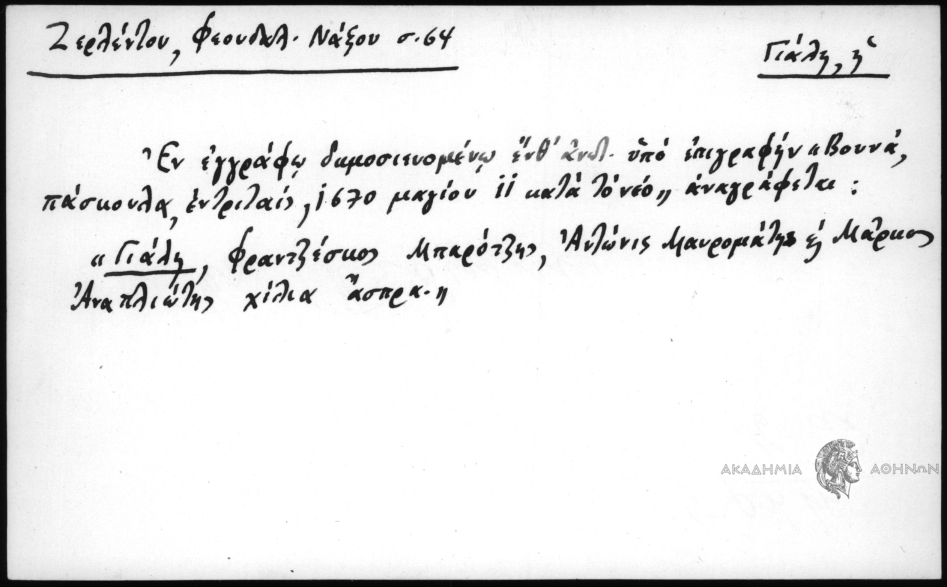 Ζερλέντου, Φεουδαλ. Νάξου σ. 64
Γιάλη, ἡ
Ἐν ἐγγράφῳ δημοσιευομένῳ ἔνθ' ἀνωτ. ὑπό ἐπιγραφήν «Βουνά,
πάσκουλα, ἐντριταίς, 1670 μαγίου 11 κατά τό νέο» ἀναγράφεται:
«Γιάλη, Φραντζέσκος Μπαρότζης, Ἀντώνις Μαυρομάτης & Μάρκος
Ἀναπλιώτης χίλια ἄσπρα.»
ΑΚΑΔΗΜΙΑ ΑΘΗΝΩΝ